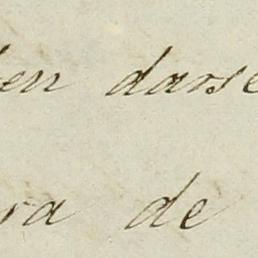 en darse
ra de